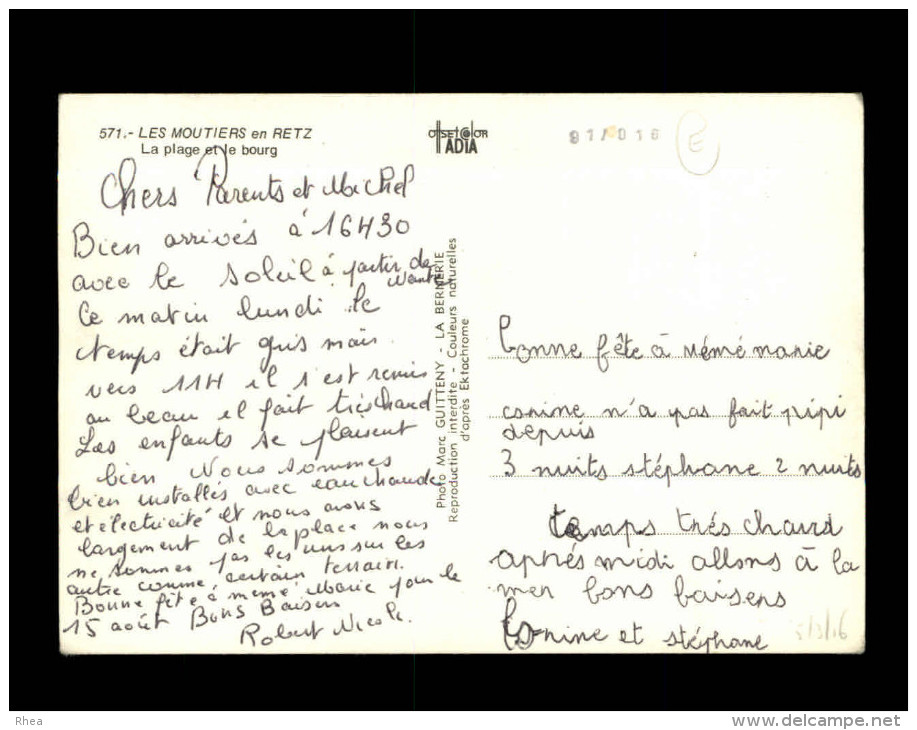 571.- LES MOUTIERS en RETZ
La plage et le bourg
OffSET COlOR
ADIA
91/016
E
Chers Parents et Michel
Bien arrivés à 16H30
avec le soleil à partir de
Nantes
Ce matin lundi le
temps était gris mais
vers 11H il s'est remis
au beau il fait très chaud
Les enfants se plaisent
bien Nous sommes
bien installés avec eau chaude
et électricité et nous avons
largement de la place nous
ne sommes pas les uns sur les
autre comme certain terrain.
Bonne fête à mémé Marie pour le
15 août Bons Baisers
Robert Nicole.
Photo Marc GUITTENY - LA BERNERIE
Reproduction interdite - Couleurs naturelles
d'après Ektachrome
bonne fête à mémé marie
conine n'a pas fait pipi
depuis
3 nuits stéphane 2 nuits
temps trés chaud
aprés midi allons à la
mer bons baisers
et stéphane
Rhea
www.delcampe.net